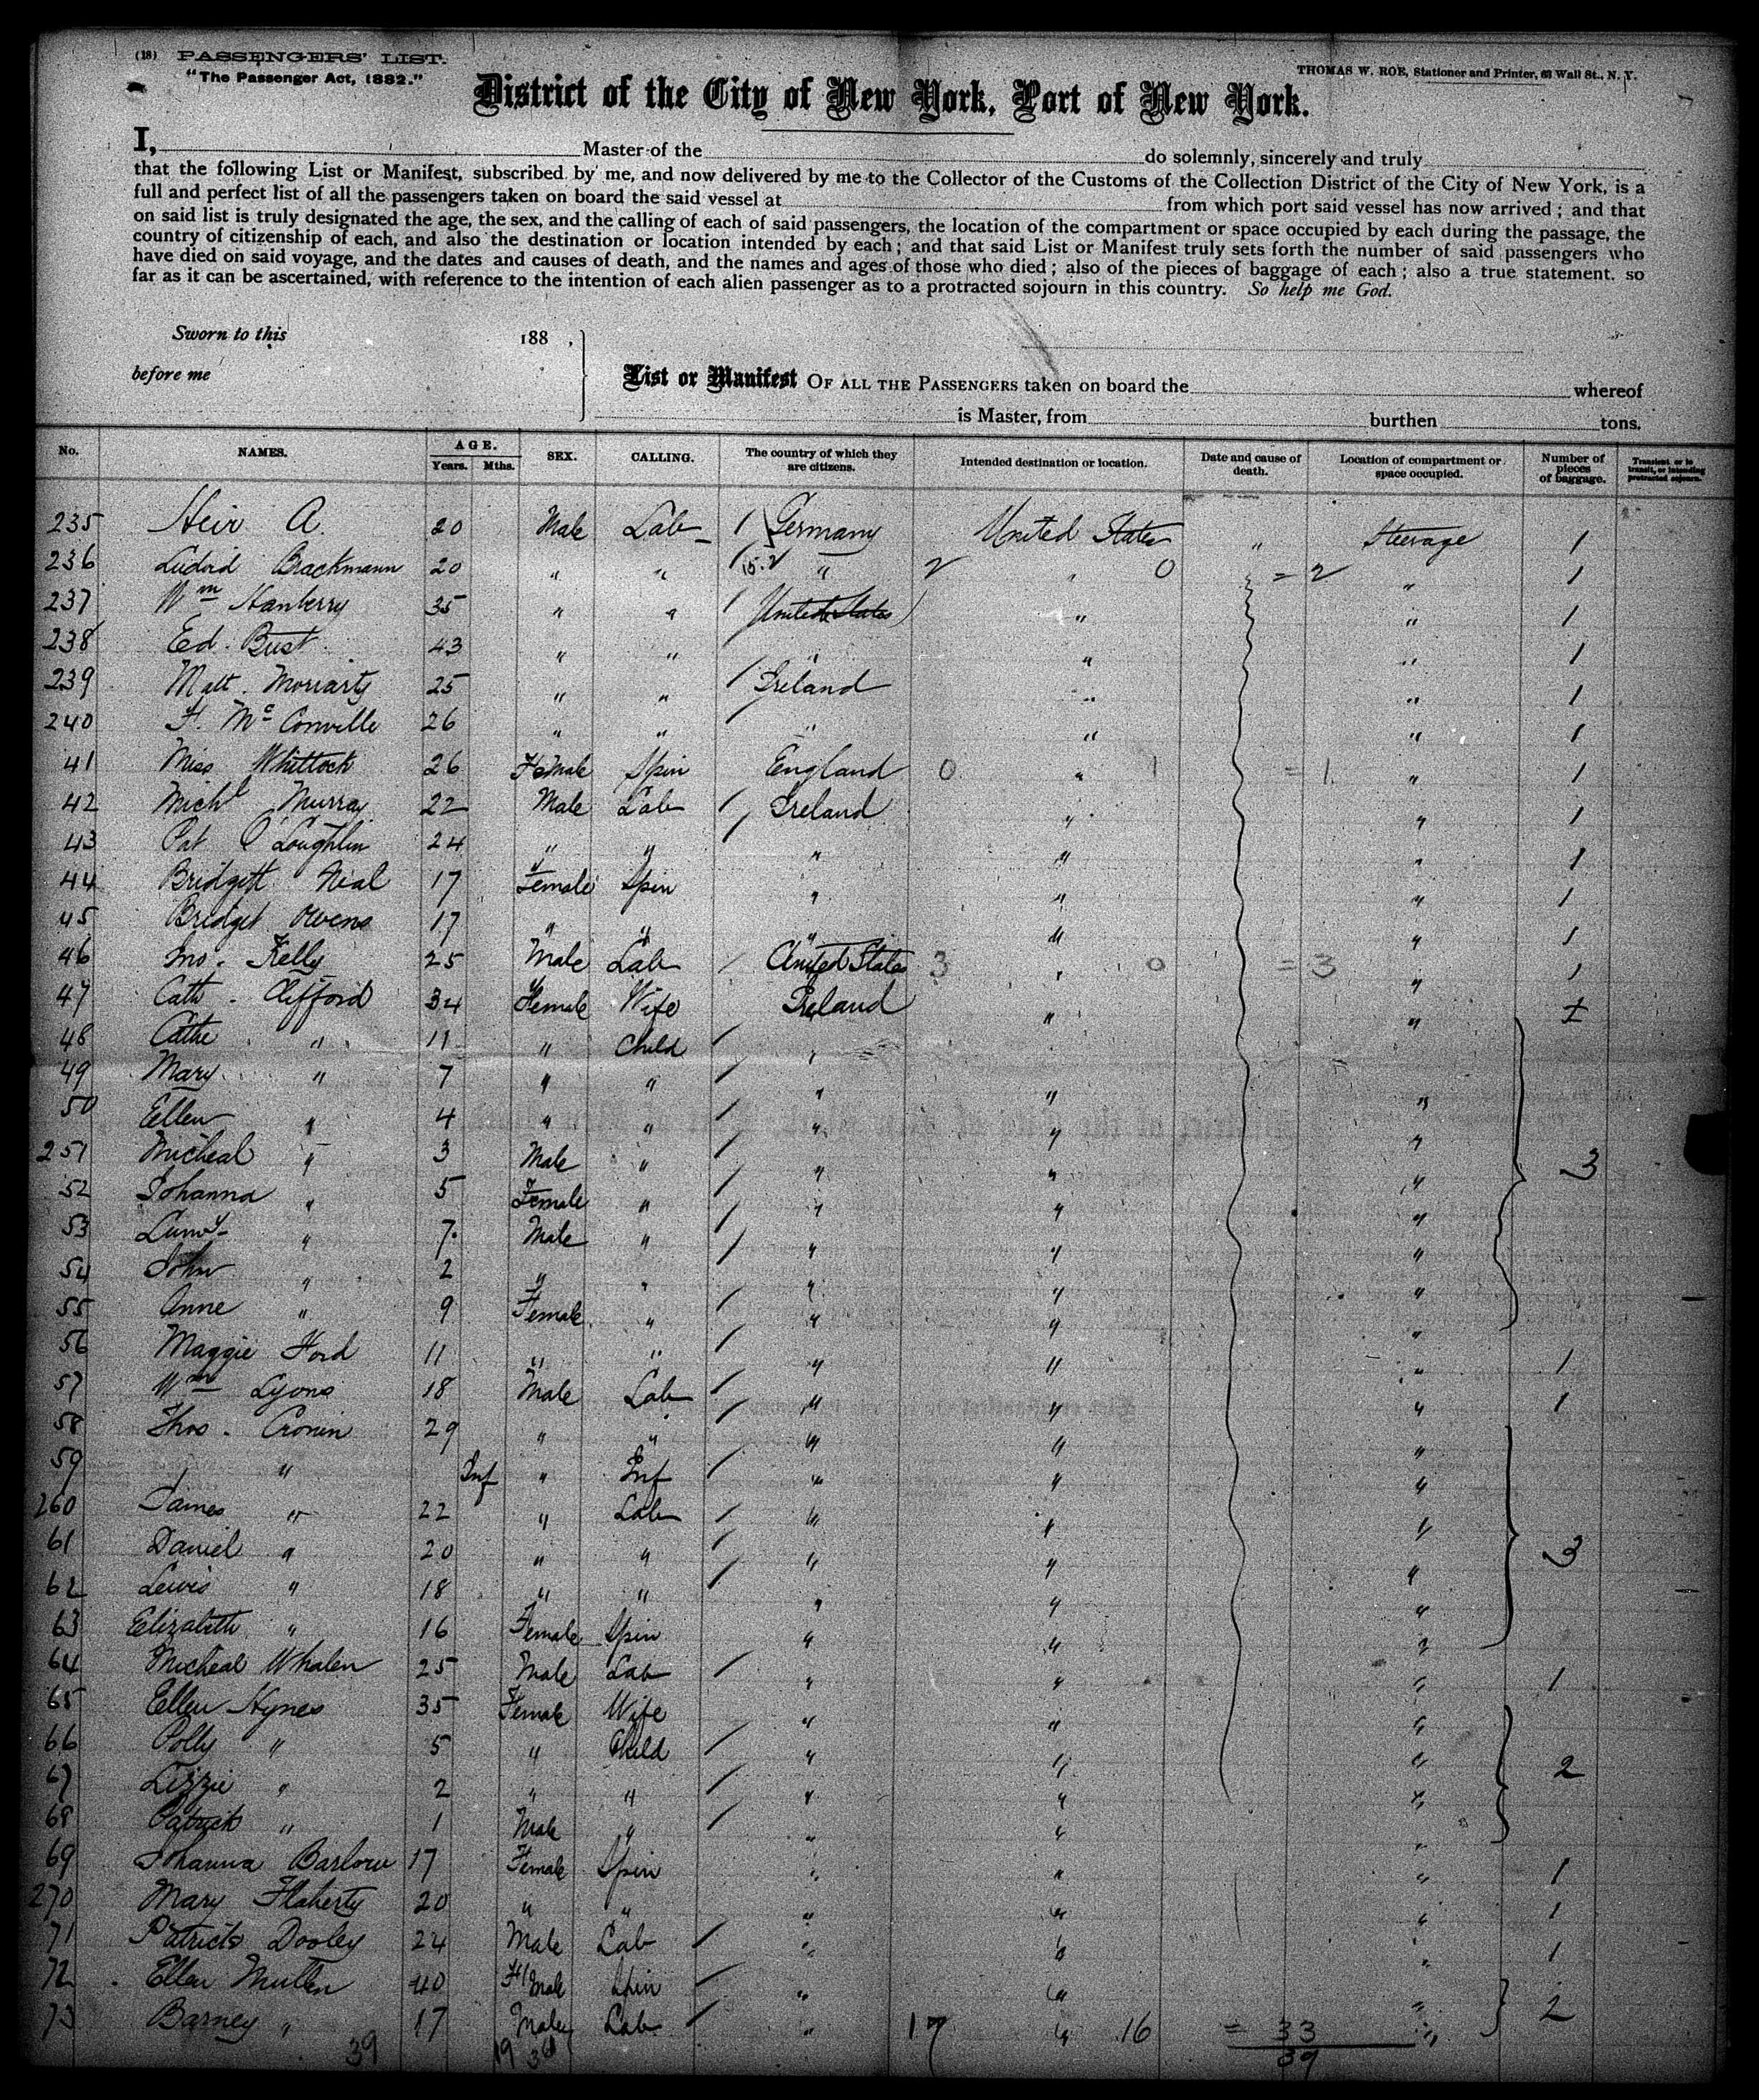 (18) PASSENGERS' LIST.
"The Passenger Act, 1882."
THOMAS W. ROE, Stationer and Printer, 63 Wall St., N. Y.
District of the City of New York, Port of New York.
I, Master of the do solemnly, sincerely and truly
that the following List or Manifest, subscribed by me, and now delivered by me to the Collector of the Customs of the Collection District of the City of New York, is a
full and perfect list of all the passengers taken on board the said vessel at from which port said vessel has now arrived; and that
on said list is truly designated the age, the sex, and the calling of each of said passengers, the location of the compartment or space occupied by each during the passage, the
country of citizenship of each, and also the destination or location intended by each; and that said List or Manifest truly sets forth the number of said passengers who
have died on said voyage, and the dates and causes of death, and the names and ages of those who died; also of the pieces of baggage of each; also a true statement. so
far as it can be ascertained, with reference to the intention of each alien passenger as to a protracted sojourn in this country. So help me God.
Sworn to this 188 ,
before me
List or Manifest OF ALL THE PASSENGERS taken on board the whereof
is Master, from burthen tons.
No. NAMES. AGE. Years. Mths. SEX. CALLING. The country of which they are citizens. Intended destination or location. Date and cause of death. Location of compartment or space occupied. Number of pieces of baggage. Transient or in transit, or intending protracted sojourn.
235 Heir A. 20 Male Lab / Germany United States " Steerage 1
236 Brackmann 20 " " 15.2 " 2 " 0 = 2 " 1
237 Wm Hanberry 35 " " / United States " " 1
238 Ed. Bust 43 " " " " " 1
239 Matt. Moriarty 25 " " / Ireland " " 1
240 F. McConville 26 " " / " " " 1
41 Miss Whittock 26 Female Spin England 0 " 1 = 1 " 1
42 Michl Murray 22 Male Lab / Ireland " " 1
43 Pat O'Loughlin 24 " " / " " " 1
44 Bridgett Neal 17 Female Spin " " " 1
45 Bridget Owens 17 " " " " " 1
46 Jno. Kelly 25 Male Lab / United States 3 " 0 = 3 " 1
47 Cath. Clifford 34 Female Wife Ireland " " 1
48 Cathe " 11 " Child / "
49 Mary " 7 " " / " " "
50 Ellen " 4 " " / " " "
251 Micheal " 3 Male " / " " " 3
52 Johanna " 5 Female " / " " "
53 " 7 Male " / " " "
54 John " 2 " " / " " "
55 Anne " 9 Female " / " " "
56 Maggie Ford 11 " " / " " " 1
57 Wm Lyons 18 Male Lab / " " " 1
58 Thos. Cronin 29 " " / " " "
59 " Inf " Inf / " " "
260 James " 22 " Lab / " " "
61 Daniel " 20 " " / " " " 3
62 Lewis " 18 " " / " " "
63 Elizabeth " 16 Female Spin " " "
64 Micheal Whalen 25 Male Lab / " " " 1
65 Ellen Hynes 35 Female Wife " " "
66 Polly " 5 " Child / " " "
67 Lizzie " 2 " " / " " " 2
68 Patrick " 1 Male " / " " "
69 Johanna Barlow 17 Female Spin " " " 1
270 Mary Flaherty 20 " " " " " 1
71 Patrick Dooley 24 Male Lab / " " " 1
72 Ellen Mullen 40 Female Spin / " " "
73 Barney " 17 Male Lab / " 17 " 16 = 33 " 2
39 19 39